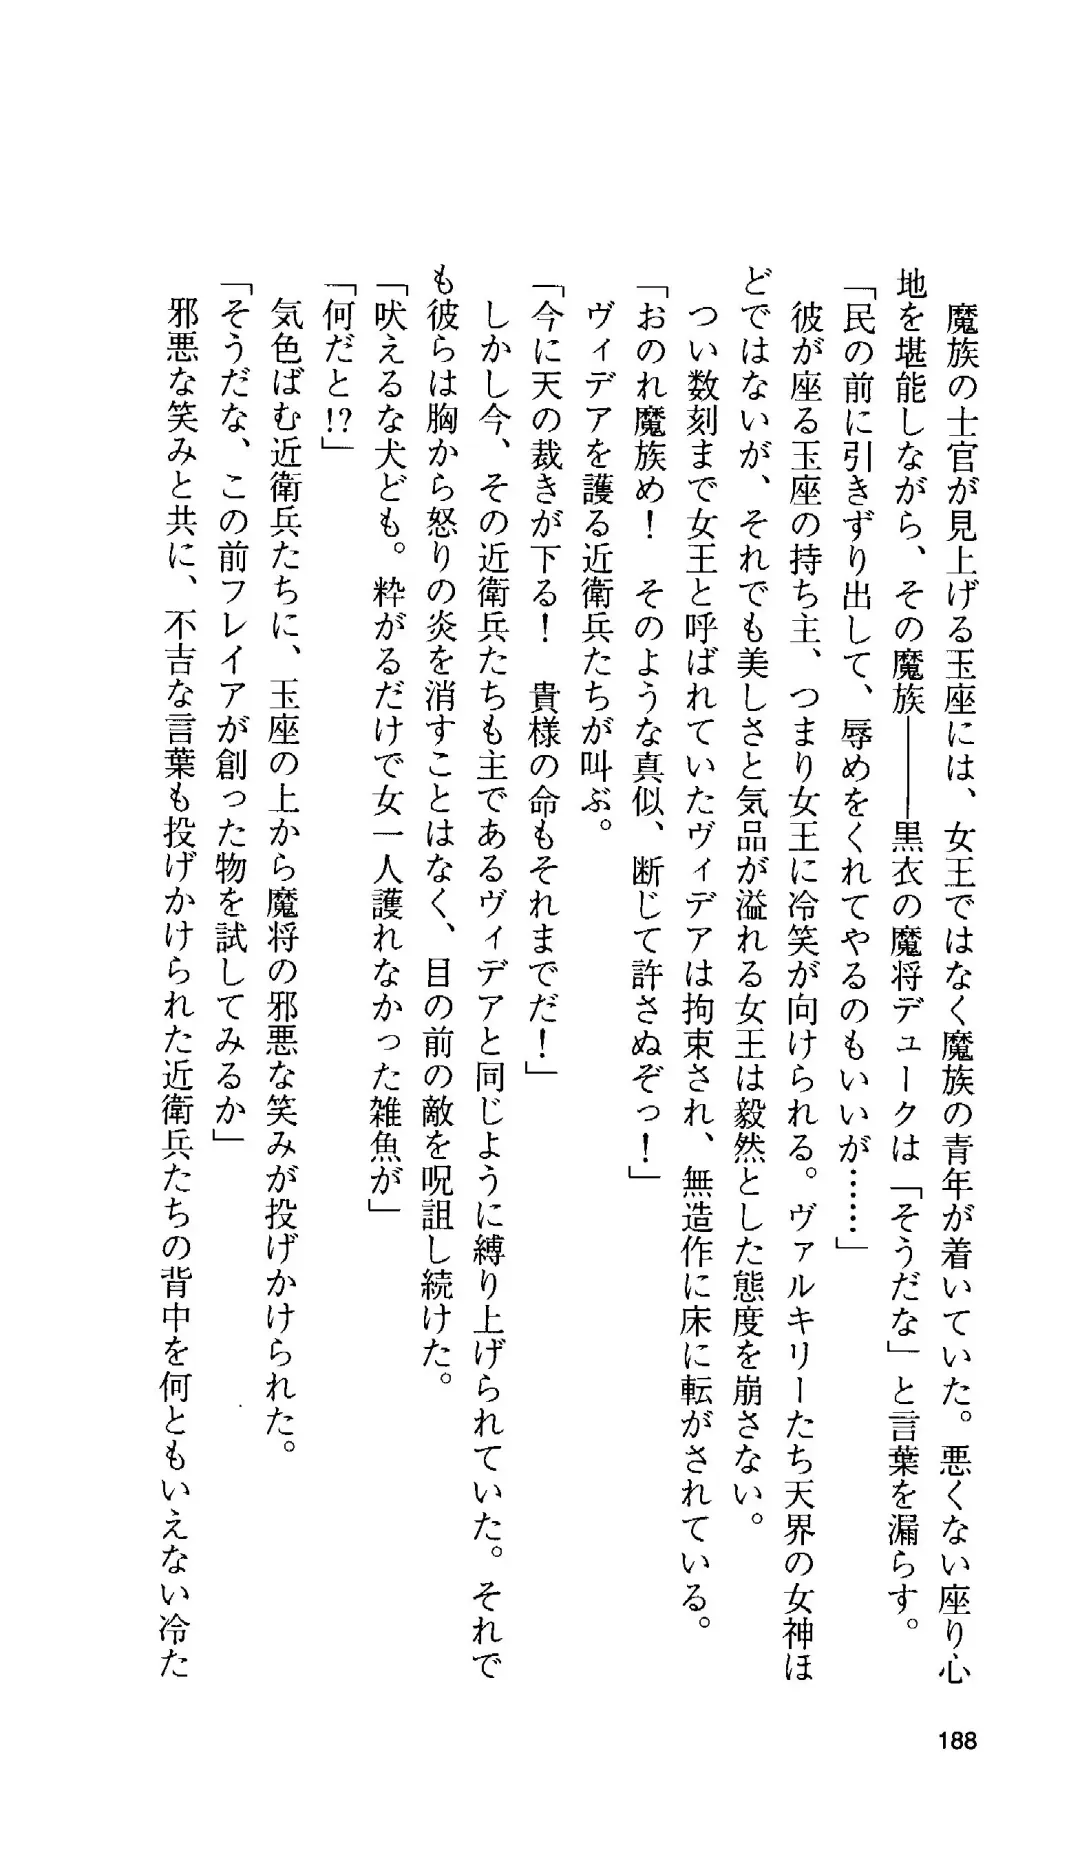 魔族の士官が見上げる玉座には、女王ではなく魔族の青年が着いていた。悪くない座り心
地を堪能しながら、その魔族――黒衣の魔将デュークは「そうだな」と言葉を漏らす。
「民の前に引きずり出して、辱めをくれてやるのもいいが……」
彼が座る玉座の持ち主、つまり女王に冷笑が向けられる。ヴァルキリーたち天界の女神ほ
どではないが、それでも美しさと気品が溢れる女王は毅然とした態度を崩さない。
つい数刻まで女王と呼ばれていたヴィデアは拘束され、無造作に床に転がされている。
「おのれ魔族め！　そのような真似、断じて許さぬぞっ！」
ヴィデアを護る近衛兵たちが叫ぶ。
「今に天の裁きが下る！　貴様の命もそれまでだ！」
しかし今、その近衛兵たちも主であるヴィデアと同じように縛り上げられていた。それで
も彼らは胸から怒りの炎を消すことはなく、目の前の敵を呪詛し続けた。
「吠えるな犬ども。粋がるだけで女一人護れなかった雑魚が」
「何だと!?」
気色ばむ近衛兵たちに、玉座の上から魔将の邪悪な笑みが投げかけられた。
「そうだな、この前フレイアが創った物を試してみるか」
邪悪な笑みと共に、不吉な言葉も投げかけられた近衛兵たちの背中を何ともいえない冷た
188